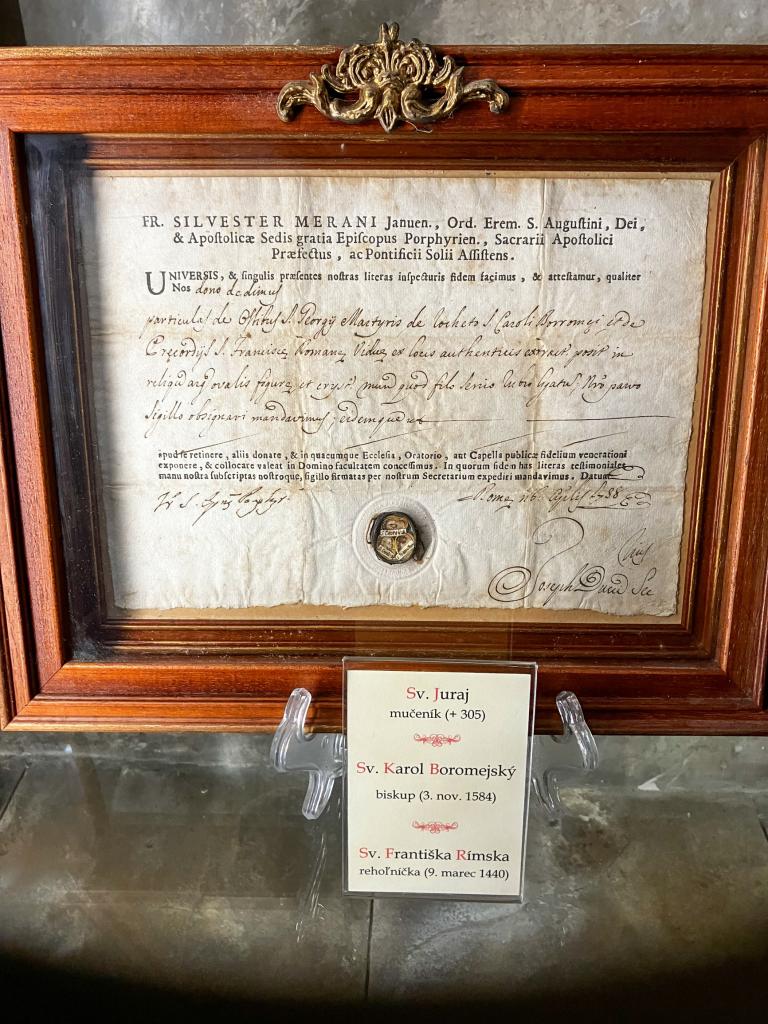 FR. SILVESTER MERANI Januen., Ord. Erem. S. Auguſtini, Dei,
& Apoſtolicæ Sedis gratia Epiſcopus Porphyrien., Sacrarii Apoſtolici
Præfectus, ac Pontificii Solii Aſſiſtens.
UNIVERSIS, & ſingulis præſentes noſtras literas inſpecturis fidem facimus, & atteſtamur, qualiter
Nos dono dedimus
particulas de S. Georgÿ Martyris de S. Caroli Borromęi et de
Pręcordÿs S. Francisce Romanę Viduę ex locis authenticis posit in
ovalis figurę et cryst. quod filo
sigillo obsignari mandavimus;
apud ſe retinere, aliis donate, & in quacumque Eccleſia, Oratorio, aut Capella publicæ fidelium venerationi
exponere, & collocare valeat in Domino facultatem conceſſimus. In quorum fidem has literas teſtimoniales
manu noſtra ſubſcriptas noſtroque, ſigillo firmatas per noſtrum Secretarium expediri mandavimus. Datum
Romę
Joseph
Sv. Juraj
mučeník (+ 305)
Sv. Karol Boromejský
biskup (3. nov. 1584)
Sv. Františka Rímska
rehoľníčka (9. marec 1440)